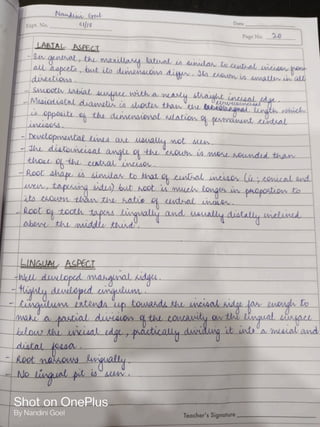 Nandini Goel
Expt. No.
61/18
Date
Page No. 20
LABIAL ASPECT
- In general, the maxillary lateral is similar to central incisor from
all aspects, but its dimensions differ. Its crown is smaller in all
directions.
- Smooth labial surface with a nearly straight incisal edge.
- Mesiodistal diameter is shorter than the cervicoincisal length which
is opposite of the dimensional relation of permanent central
incisors.
- Developmental lines are usually not seen.
- The distoincisal angle of the crown is more rounded than
those of the central incisor.
- Root shape is similar to that of central incisor (i.e; conical and
even, tapering sides) but root is much longer in proportion to
its crown than the ratio of central incisor.
- Root of tooth tapers lingually and usually distally inclined
above the middle third.
LINGUAL ASPECT
- Well developed marginal ridges.
- Highly developed cingulum.
- Cingulum extends up towards the incisal ridge far enough to
make a partial division of the concavity on the lingual surface
below the incisal edge, practically dividing it into a mesial and
distal fossa.
- Root narrows lingually.
- No lingual pit is seen.
Shot on OnePlus
By Nandini Goel
Teacher's Signature